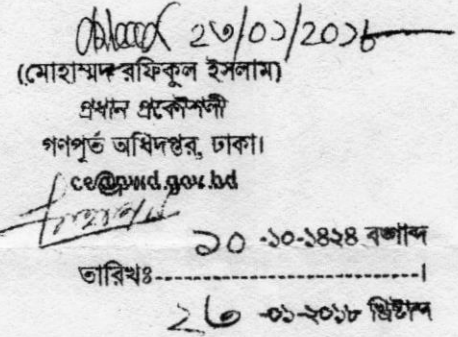 ২৩/০১/২০১৮
(মোহাম্মদ রফিকুল ইসলাম)
প্রধান প্রকৌশলী
গণপূর্ত অধিদপ্তর, ঢাকা।
ce@pwd.gov.bd
১০ -১০-১৪২৪ বঙ্গাব্দ
তারিখঃ-----------------------------।
২৩ -০১-২০১৮ খ্রিষ্টাব্দ